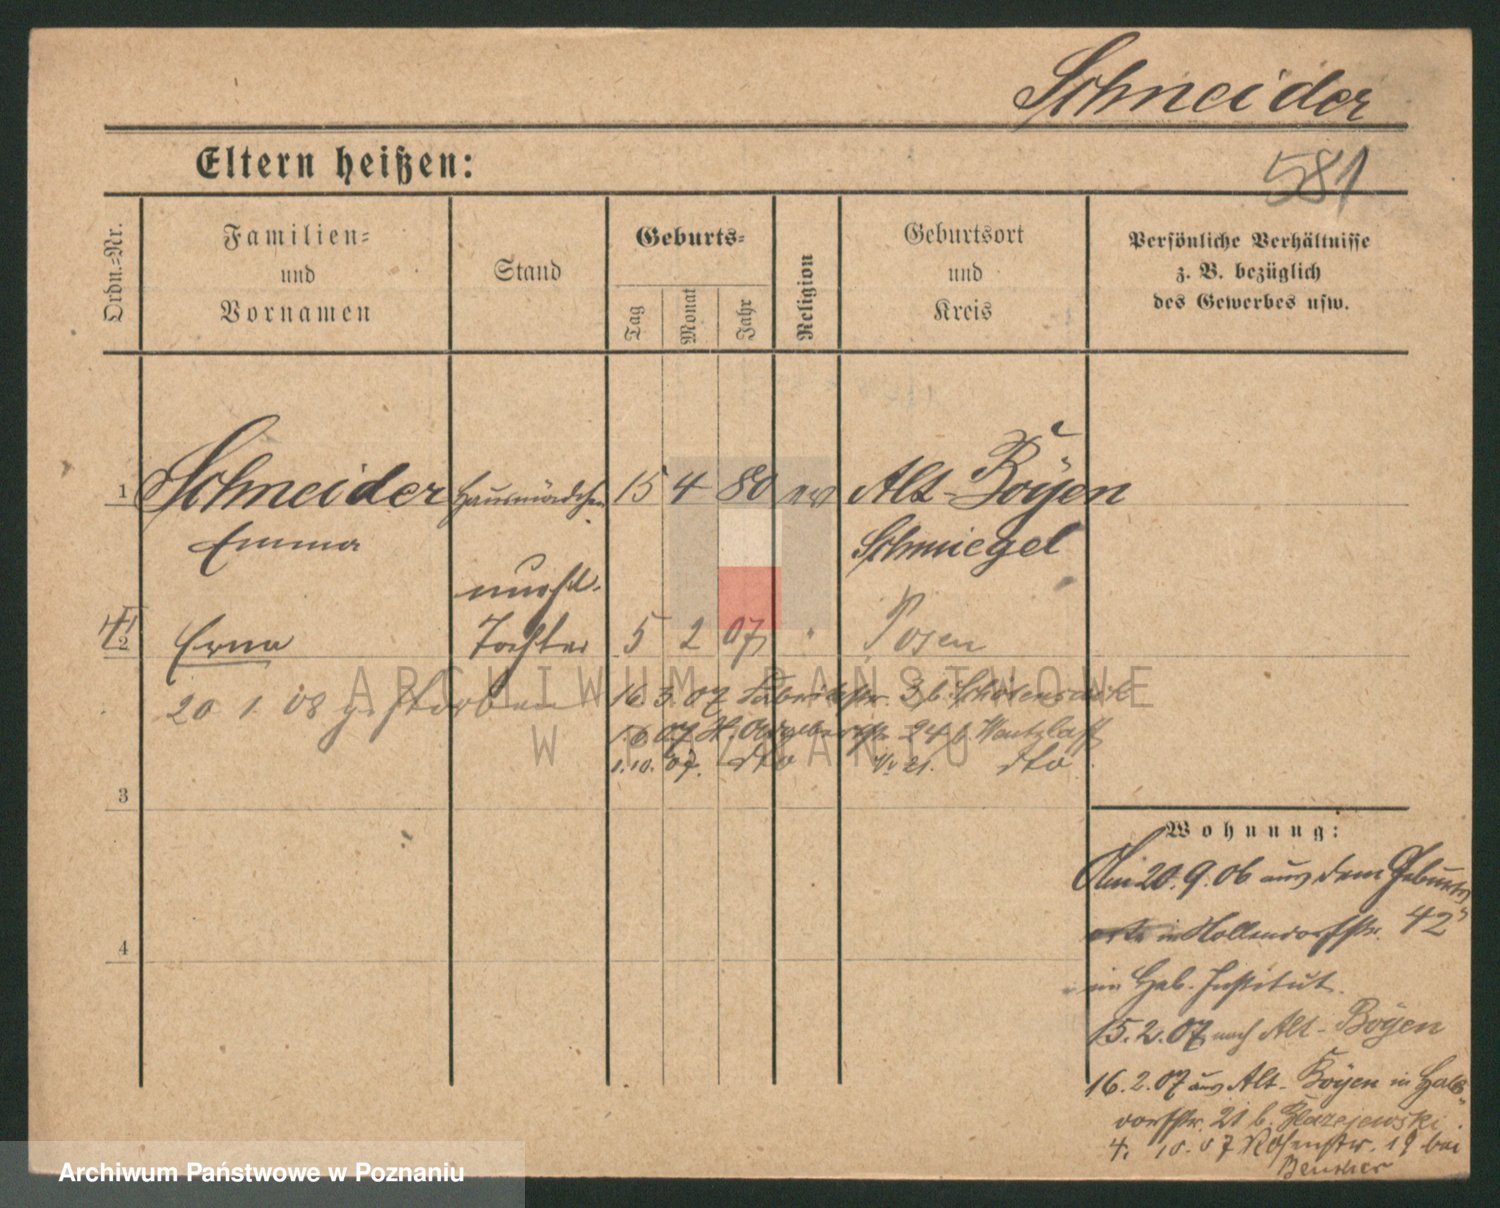 Schneider
Eltern heißen:
581
Ordn.=Nr.
Familien=
und
Vornamen
Stand
Geburts=
Tag
Monat
Jahr
Religion
Geburtsort
und
Kreis
Persönliche Verhältnisse
z. B. bezüglich
des Gewerbes usw.
1 Schneider Hausmädchen 15 4 80 ev Alt-Böyen
Emma Schmiegel
unehl.
2 Erna Tochter 5 2 07 " Posen
20. 1. 08 gestorben
16. 3. 07 b.
07 24 b. Wentzlaff
1. 10. 07. dto 21. dto
3
4
Wohnung:
Am 20. 9. 06 aus dem Geburts
orte in 42
im Heb. Institut.
15. 2. 07 nach Alt-Böyen
16. 2. 07 aus Alt-Böyen in Halb
dorfstr. 21 b. Blazejewski
4. 10. 07 Rosenstr. 19 bei
ARCHIWUM PAŃSTWOWE
W POZNANIU
Archiwum Państwowe w Poznaniu